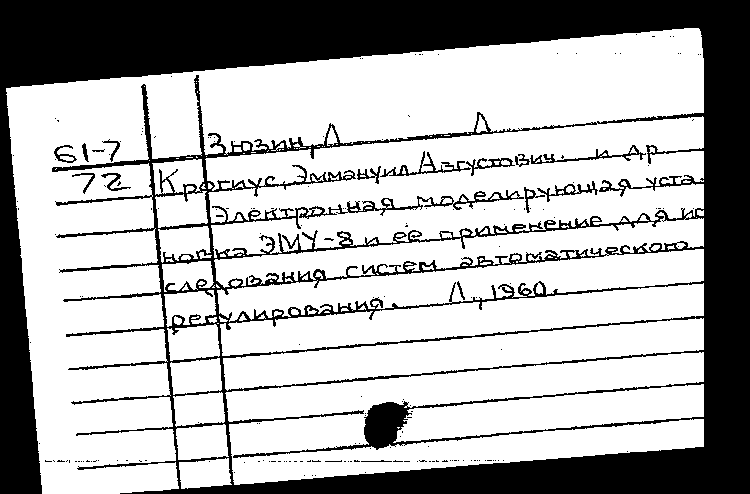 61-7 Зюзин, Л Л
72 Крогиус, Эммануил Августович. и др.
Электронная моделирующая уста-
новка ЭМУ-8 и ее применение для ис
следования систем автоматического
регулирования. Л., 1960.